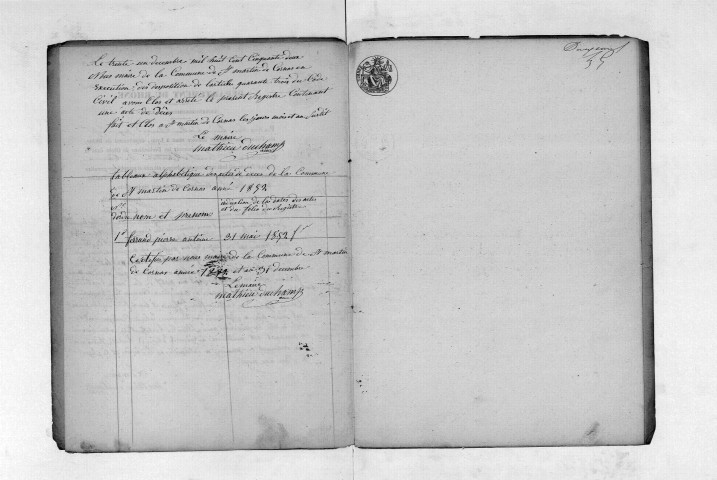 Le trente un decembre mil huit cent cinquante deux
Nous maire de la Commune de St martin de Cornas en
Execution des disposition de larticle quarante trois du Code
Civil avons Clos et arreté le présent Registre Contenant
une acte de Décès
fait et Clos a St martin de Cornas les jours mois et an susdit
Le maire
mathieu duchamp
tableaux alphabétique des actes de deces de la Commune
de St martin de Cornas année 1852
nos
dordre nom et prenom
indication de la dates des actes
et du folio du Registre
1er ferrand pierre antoine 31 mai 1852
Certifié par nous maire de la Commune de St martin
de Cornas année 1852 et au 31 decembre
Le maire
mathieu duchamp